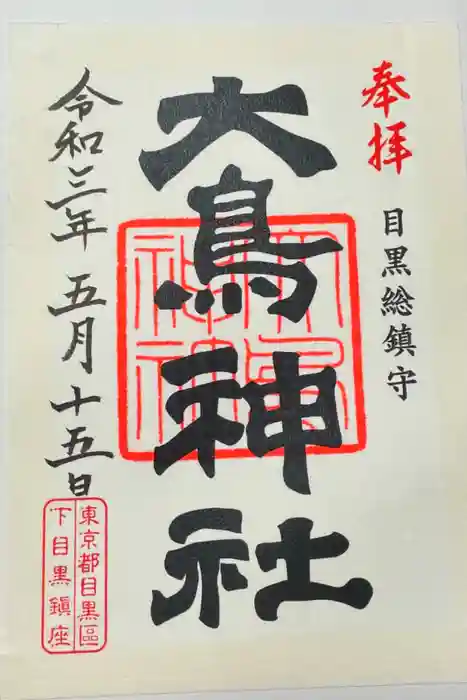 奉拝
目黒総鎮守
大鳥神社
大鳥神社
令和三年 五月十五日
東京都目黒區
下目黒鎮座